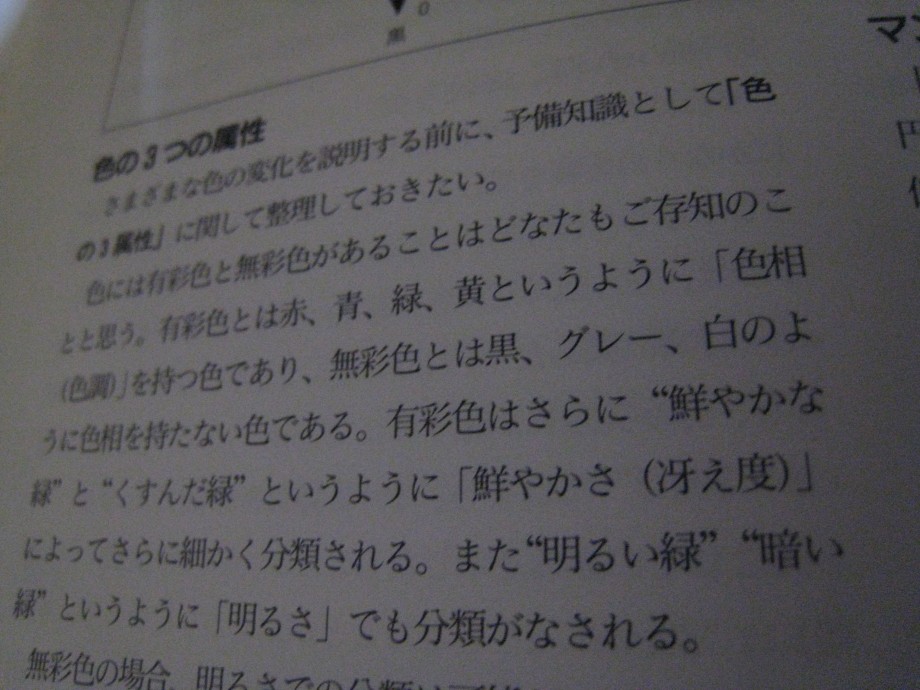 0
黒
色の3つの属性
さまざまな色の変化を説明する前に、予備知識として「色
の3属性」に関して整理しておきたい。
色には有彩色と無彩色があることはどなたもご存知のこ
とと思う。有彩色とは赤、青、緑、黄というように「色相
(色調)」を持つ色であり、無彩色とは黒、グレー、白のよ
うに色相を持たない色である。有彩色はさらに“鮮やかな
緑”と“くすんだ緑”というように「鮮やかさ（冴え度）」
によってさらに細かく分類される。また“明るい緑”“暗い
緑”というように「明るさ」でも分類がなされる。
無彩色の場合、明るさでの分類は
マン
円